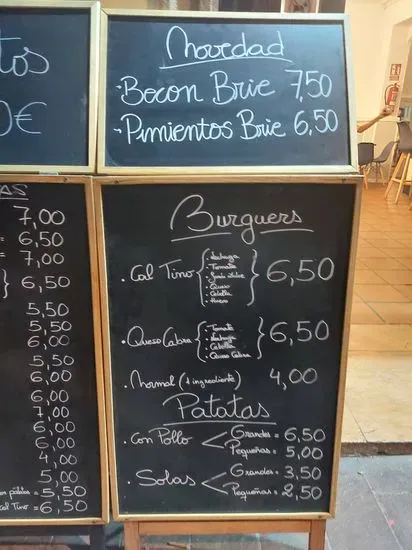 tos
0€
Novedad
·Becon Brie 7,50
·Pimientos Brie 6,50
AS
7,00
= 6,50
= 7,00
} 6,50
5,50
5,50
6,00
5,50
6,00
6,00
7,00
6,00
6,00
4,00
5,00
= 5,50
Cal Tino = 6,50
Burguers
·Cal Tino { } 6,50
·Lechuga
·Tomate
·Queso
·Cebolla
·Huevo
·Queso Cabra { } 6,50
·Tomate
·Lechuga
·Cebolla
·Queso Cabra
·Normal (1 ingrediente) 4,00
Patatas
·Con Pollo < Grandes = 6,50
Pequeñas = 5,00
·Solas < Grandes = 3,50
Pequeñas = 2,50